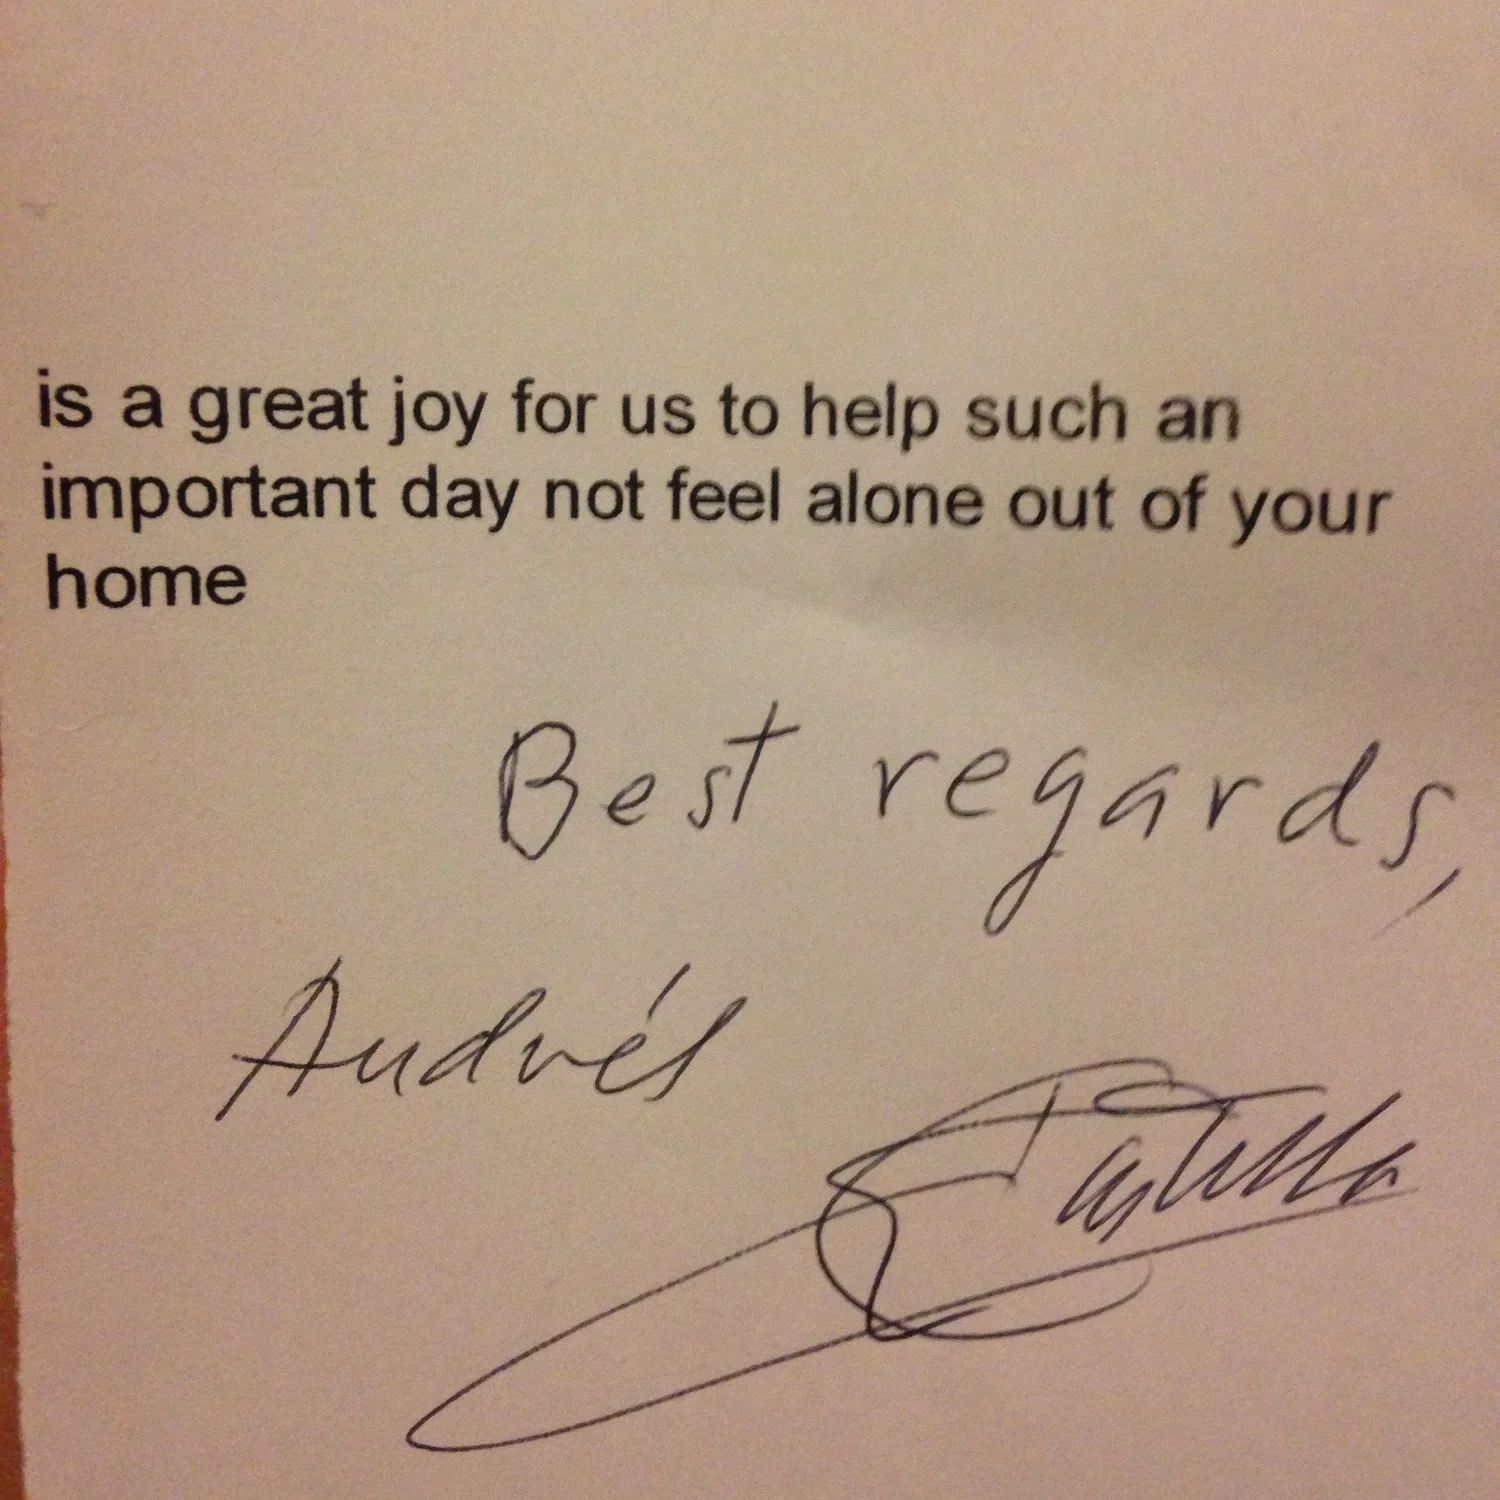 is a great joy for us to help such an
important day not feel alone out of your
home
Best regards,
Andrés